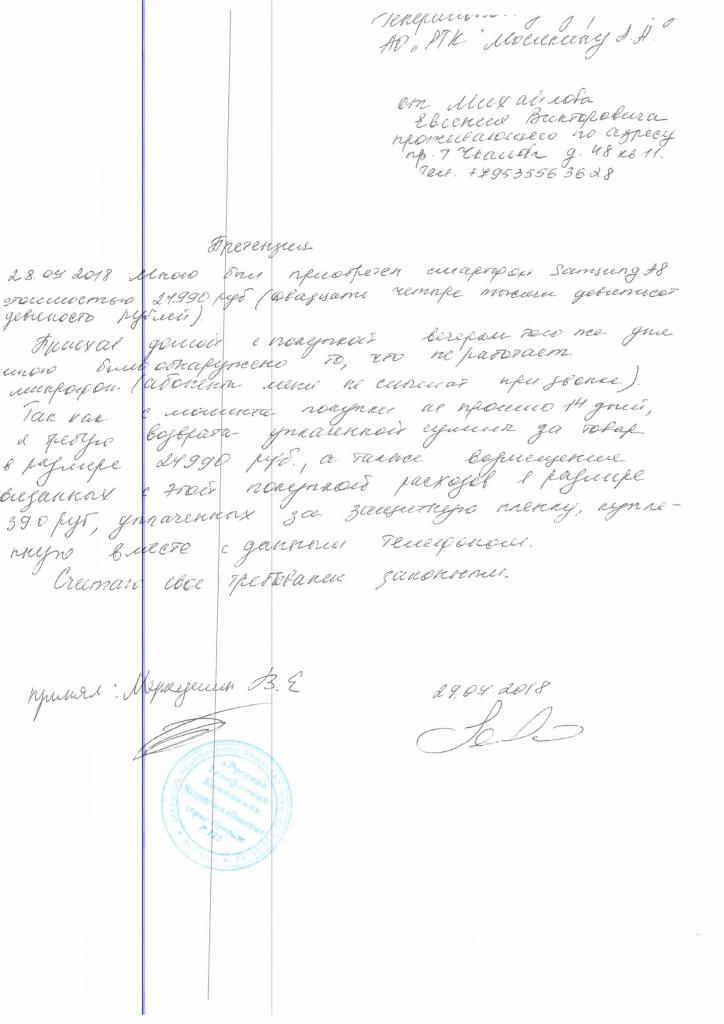 АО "РТК"
от Михайлова
Евгения Викторовича
проживающего по адресу
пр-т Чкалова д. 48 кв 11.
Тел. +79535563628
Претензия
28.07 2018 Мною был приобретен смартфон Samsung A8
стоимостью 24.990 руб (двадцать четыре тысячи девятьсот
девяносто рублей).
Приехав домой с покупкой вечером того же дня
мною было обнаружено то, что не работает
микрофон (абоненты меня не слышат при звонке).
Так как с момента покупки не прошло 14 дней,
я требую возврата уплаченной суммы за товар
в размере 24990 руб., а также возмещение
связанных с этой покупкой расходов в размере
390 руб, уплаченных за защитную пленку, купле-
нную вместе с данным телефоном.
Считаю свое требование законным.
принял: В. Е
29.07.2018
«Русская
Телефонная
Компания»